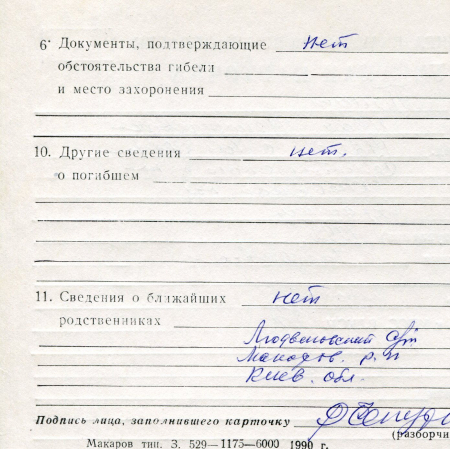 6. Документы, подтверждающие нет
обстоятельства гибели
и место захоронения
10. Другие сведения нет.
о погибшем
11. Сведения о ближайших нет
родственниках
Макаров. р-н
Киев. обл.
Подпись лица, заполнившего карточку
(разборчи
Макаров тип. З. 529—1175—6000 1990 г.